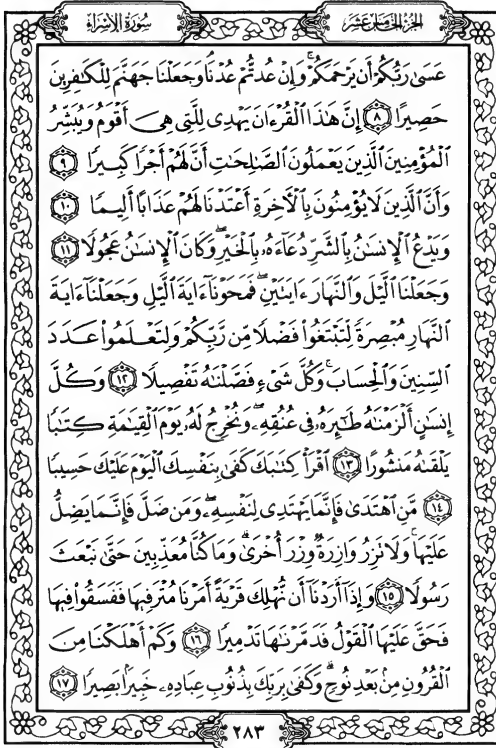 الجزء الخامس عشر
سورة الإسراء
عَسَىٰ رَبُّكُمْ أَن يَرْحَمَكُمْ ۚ وَإِنْ عُدتُّمْ عُدْنَا ۘ وَجَعَلْنَا جَهَنَّمَ لِلْكَٰفِرِينَ
حَصِيرًا ٨ إِنَّ هَٰذَا ٱلْقُرْءَانَ يَهْدِى لِلَّتِى هِىَ أَقْوَمُ وَيُبَشِّرُ
ٱلْمُؤْمِنِينَ ٱلَّذِينَ يَعْمَلُونَ ٱلصَّٰلِحَٰتِ أَنَّ لَهُمْ أَجْرًا كَبِيرًا ٩
وَأَنَّ ٱلَّذِينَ لَا يُؤْمِنُونَ بِٱلْءَاخِرَةِ أَعْتَدْنَا لَهُمْ عَذَابًا أَلِيمًا ١٠
وَيَدْعُ ٱلْإِنسَٰنُ بِٱلشَّرِّ دُعَآءَهُۥ بِٱلْخَيْرِ ۖ وَكَانَ ٱلْإِنسَٰنُ عَجُولًا ١١
وَجَعَلْنَا ٱلَّيْلَ وَٱلنَّهَارَ ءَايَتَيْنِ ۖ فَمَحَوْنَآ ءَايَةَ ٱلَّيْلِ وَجَعَلْنَآ ءَايَةَ
ٱلنَّهَارِ مُبْصِرَةً لِّتَبْتَغُوا۟ فَضْلًا مِّن رَّبِّكُمْ وَلِتَعْلَمُوا۟ عَدَدَ
ٱلسِّنِينَ وَٱلْحِسَابَ ۚ وَكُلَّ شَىْءٍ فَصَّلْنَٰهُ تَفْصِيلًا ١٢ وَكُلَّ
إِنسَٰنٍ أَلْزَمْنَٰهُ طَٰٓئِرَهُۥ فِى عُنُقِهِۦ ۖ وَنُخْرِجُ لَهُۥ يَوْمَ ٱلْقِيَٰمَةِ كِتَٰبًا
يَلْقَىٰهُ مَنشُورًا ١٣ ٱقْرَأْ كِتَٰبَكَ كَفَىٰ بِنَفْسِكَ ٱلْيَوْمَ عَلَيْكَ حَسِيبًا
١٤ مَّنِ ٱهْتَدَىٰ فَإِنَّمَا يَهْتَدِى لِنَفْسِهِۦ ۖ وَمَن ضَلَّ فَإِنَّمَا يَضِلُّ
عَلَيْهَا ۚ وَلَا تَزِرُ وَازِرَةٌ وِزْرَ أُخْرَىٰ ۗ وَمَا كُنَّا مُعَذِّبِينَ حَتَّىٰ نَبْعَثَ
رَسُولًا ١٥ وَإِذَآ أَرَدْنَآ أَن نُّهْلِكَ قَرْيَةً أَمَرْنَا مُتْرَفِيهَا فَفَسَقُوا۟ فِيهَا
فَحَقَّ عَلَيْهَا ٱلْقَوْلُ فَدَمَّرْنَٰهَا تَدْمِيرًا ١٦ وَكَمْ أَهْلَكْنَا مِنَ
ٱلْقُرُونِ مِنۢ بَعْدِ نُوحٍ ۗ وَكَفَىٰ بِرَبِّكَ بِذُنُوبِ عِبَادِهِۦ خَبِيرًۢا بَصِيرًا ١٧
٢٨٣